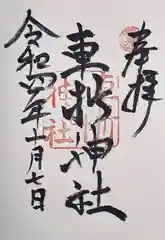 奉拝
車折神社
令和四年十月七日